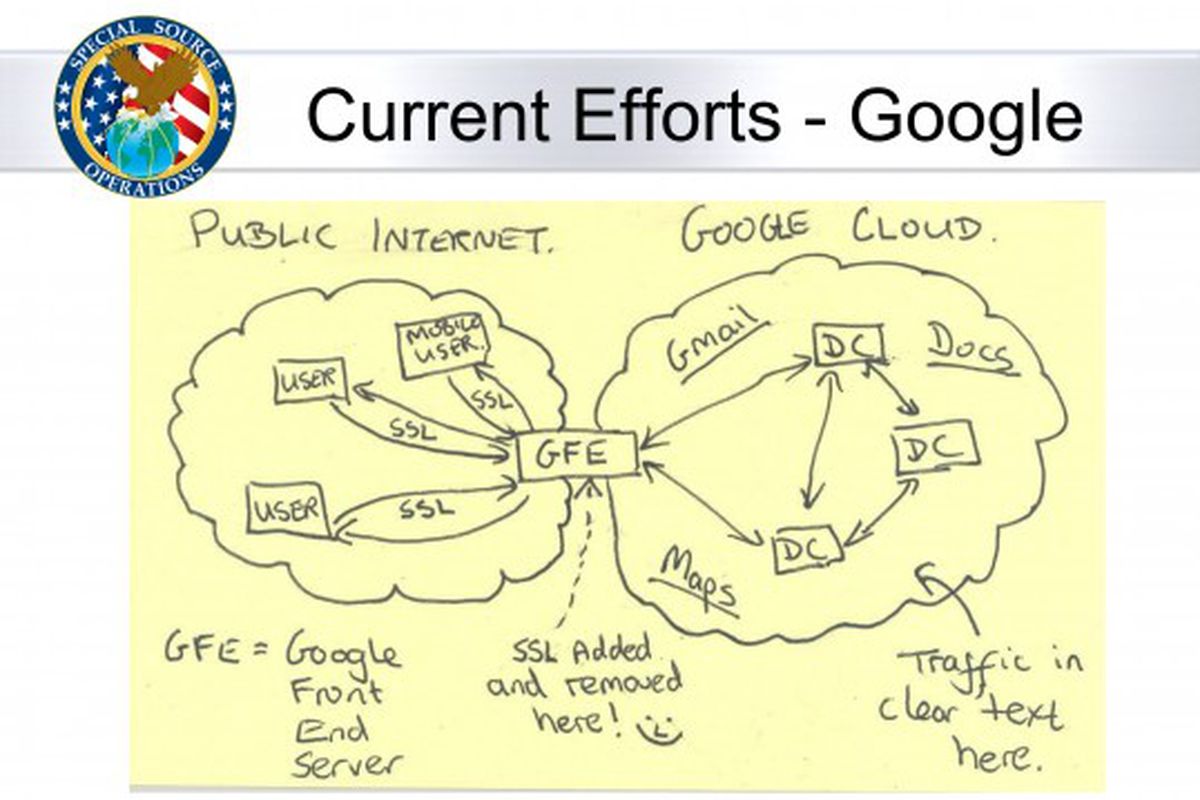 SPECIAL SOURCE
OPERATIONS
Current Efforts - Google
PUBLIC INTERNET.
GOOGLE CLOUD.
MOBILE
USER.
USER
SSL
SSL
GFE
USER
SSL
Gmail
DC
Docs
DC
DC
Maps
GFE = Google
Front
End
Server
SSL Added
and removed
here!
Traffic in
clear text
here.